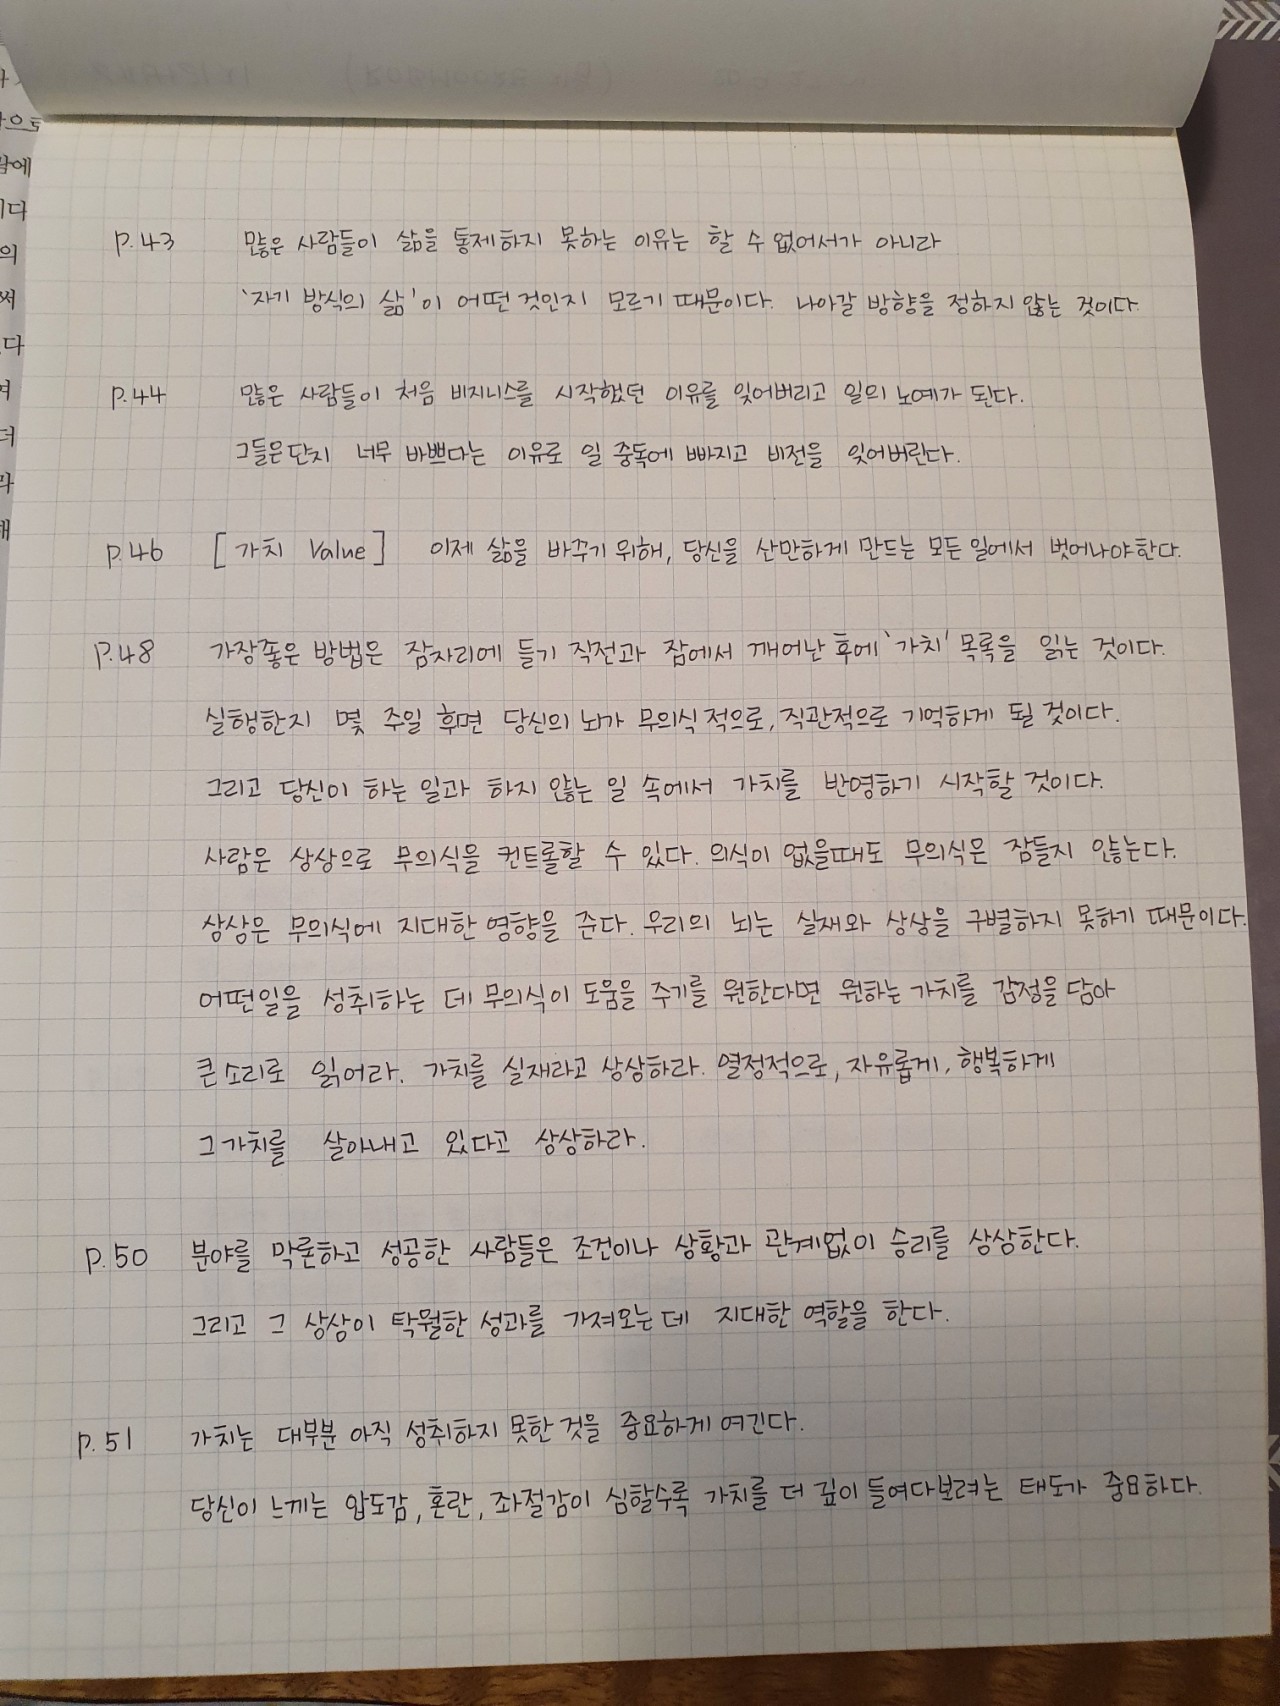 p.43 많은 사람들이 삶을 통제하지 못하는 이유는 할 수 없어서가 아니라
'자기 방식의 삶'이 어떤 것인지 모르기 때문이다. 나아갈 방향을 정하지 않는 것이다.
p.44 많은 사람들이 처음 비지니스를 시작했던 이유를 잊어버리고 일의 노예가 된다.
그들은 단지 너무 바쁘다는 이유로 일 중독에 빠지고 비전을 잊어버린다.
p.46 [가치 Value] 이제 삶을 바꾸기 위해, 당신을 산만하게 만드는 모든 일에서 벗어나야한다.
p.48 가장좋은 방법은 잠자리에 들기 직전과 잠에서 깨어난 후에 '가치' 목록을 읽는 것이다.
실행한지 몇 주일 후면 당신의 뇌가 무의식적으로, 직관적으로 기억하게 될 것이다.
그리고 당신이 하는 일과 하지 않는 일 속에서 가치를 반영하기 시작할 것이다.
사람은 상상으로 무의식을 컨트롤할 수 있다. 의식이 없을때도 무의식은 잠들지 않는다.
상상은 무의식에 지대한 영향을 준다. 우리의 뇌는 실재와 상상을 구별하지 못하기 때문이다.
어떤일을 성취하는 데 무의식이 도움을 주기를 원한다면 원하는 가치를 감정을 담아
큰 소리로 읽어라. 가치를 실재라고 상상하라. 열정적으로, 자유롭게, 행복하게
그 가치를 살아내고 있다고 상상하라.
p.50 분야를 막론하고 성공한 사람들은 조건이나 상황과 관계없이 승리를 상상한다.
그리고 그 상상이 탁월한 성과를 가져오는 데 지대한 역할을 한다.
p.51 가치는 대부분 아직 성취하지 못한 것을 중요하게 여긴다.
당신이 느끼는 압도감, 혼란, 좌절감이 심할수록 가치를 더 깊이 들여다보려는 태도가 중요하다.